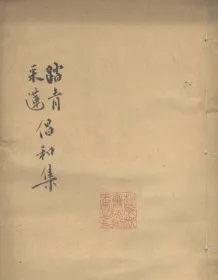 踏青
采蓮倡和集